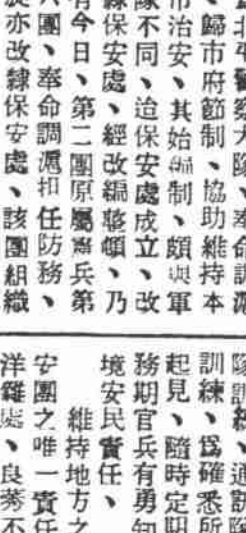 北平警察大隊、奉命調滬
、歸市府節制、協助維持本
市治安、其始編制、頗與軍
隊不同、迨保安處成立、改
隸保安處、經改編整頓、乃
有今日、第二團原屬憲兵第
六團、奉命調滬担任防務、
旋亦改隸保安處、該團組織、
隊訓練、通訊隊
訓練、爲確悉所
起見、隨時定期
務期官兵有勇知
境安民責任、
維持地方之
安團之唯一責任
洋雜處、良莠不